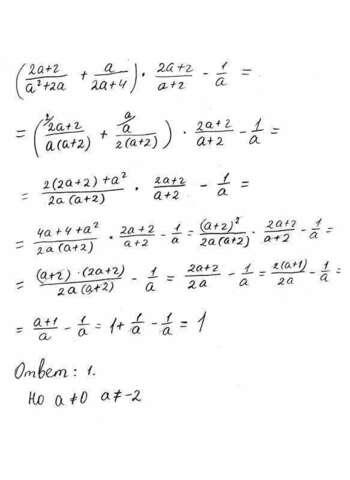 (2a+2/a²+2a + a/2a+4) · 2a+2/a+2 - 1/a =
= (²2a+2/a(a+2) + ᵃa/2(a+2)) · 2a+2/a+2 - 1/a =
= 2(2a+2)+a²/2a(a+2) · 2a+2/a+2 - 1/a =
= 4a+4+a²/2a(a+2) · 2a+2/a+2 - 1/a = (a+2)²/2a(a+2) · 2a+2/a+2 - 1/a =
= (a+2)·(2a+2)/2a(a+2) - 1/a = 2a+2/2a - 1/a = 2(a+1)/2a - 1/a =
= a+1/a - 1/a = 1 + 1/a - 1/a = 1
Ответ: 1.
Но a≠0 a≠-2